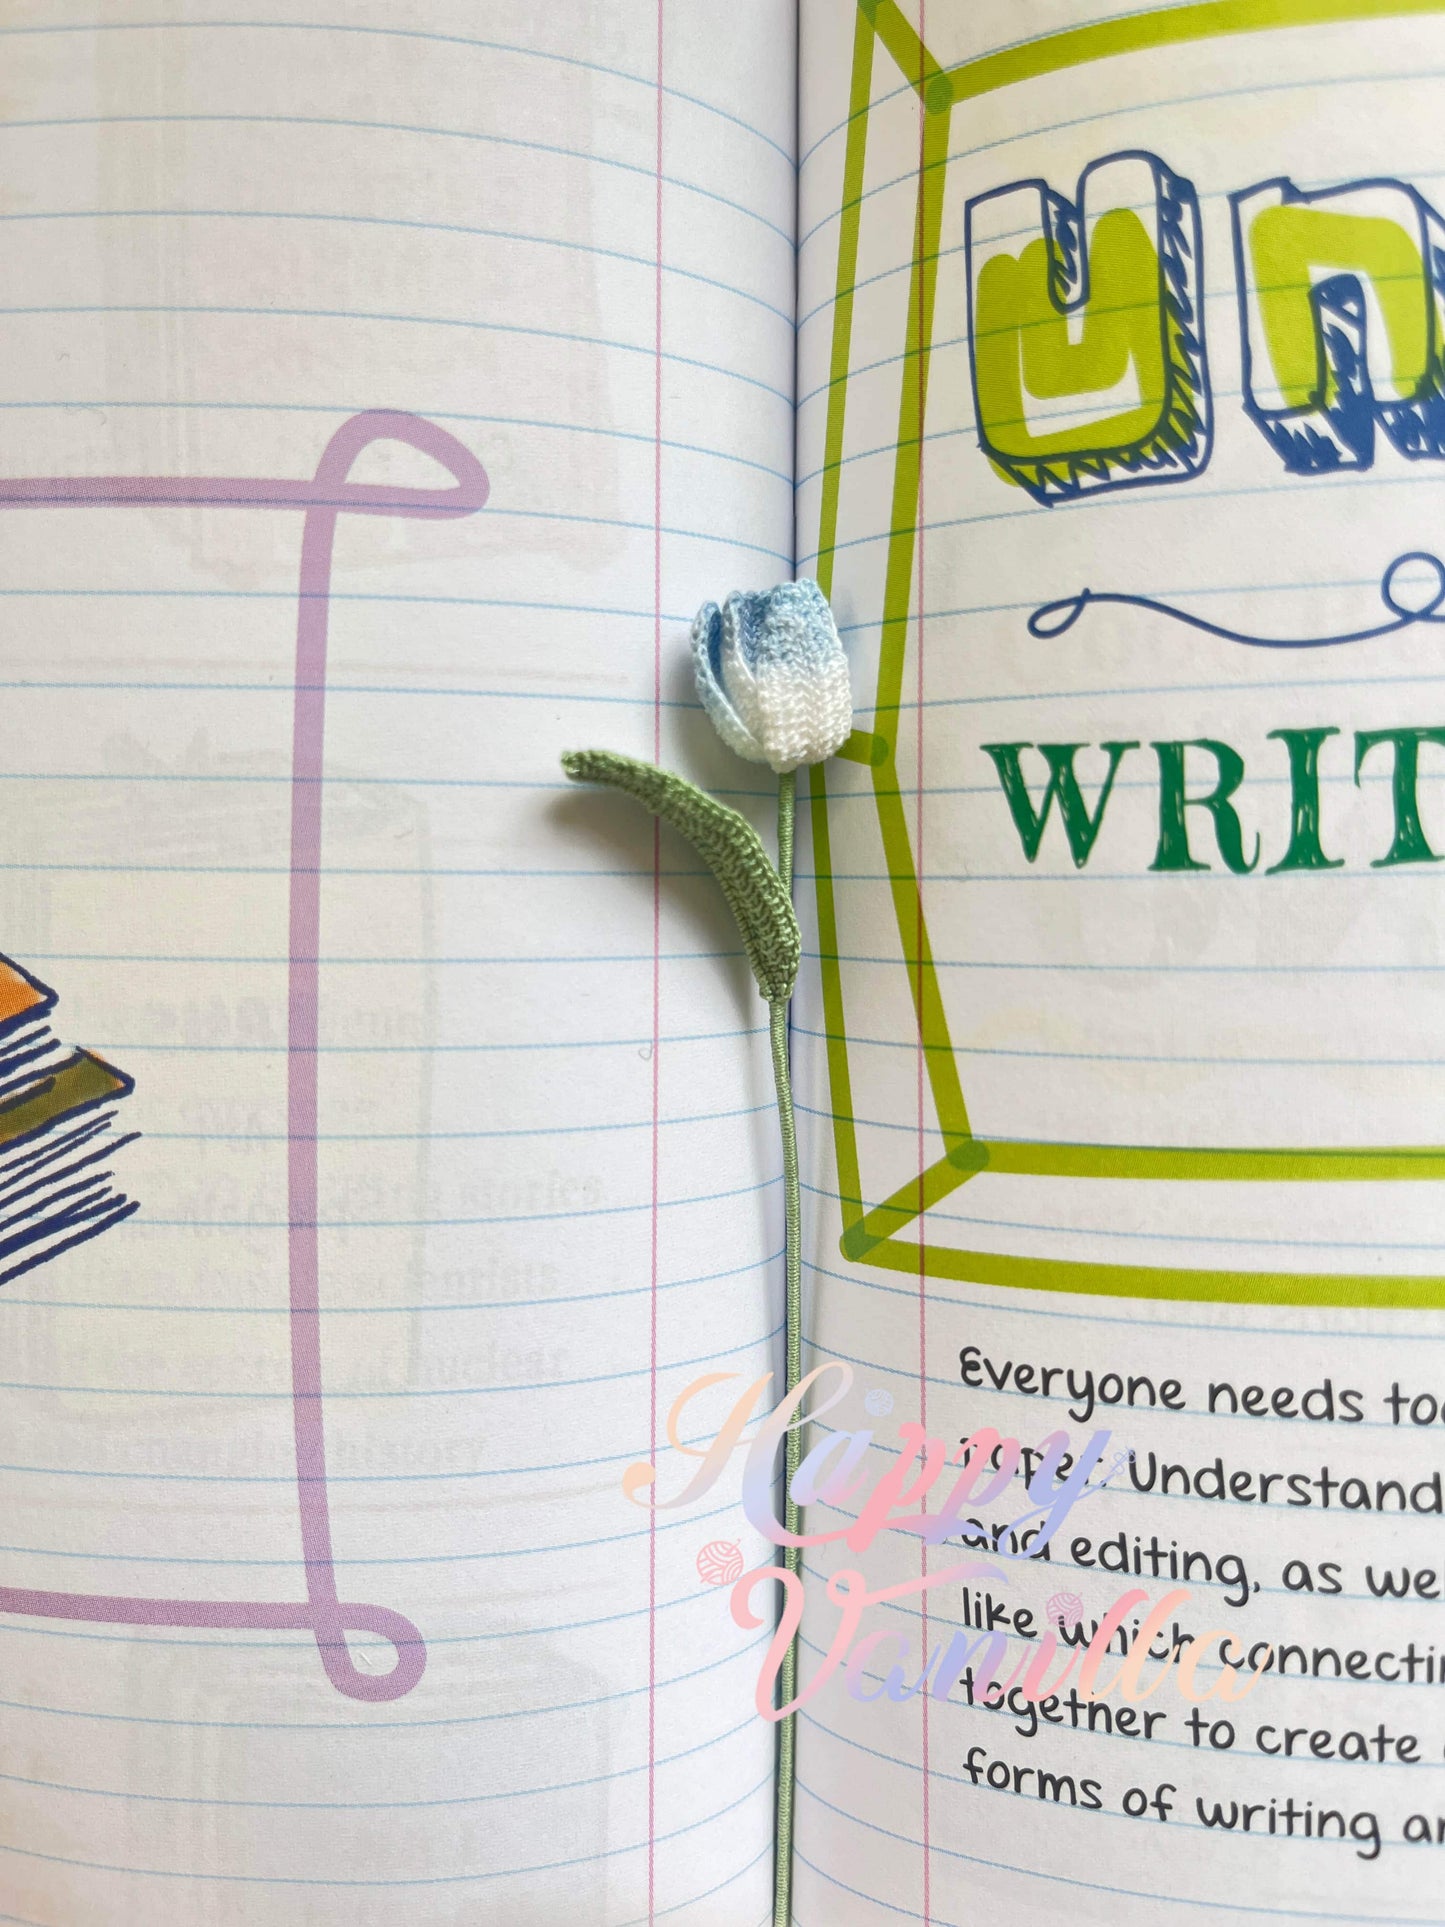 Un
WRIT
Everyone needs too
paper. Understand
and editing, as we
like which connectin
together to create
forms of writing an
Happy
Vanilla